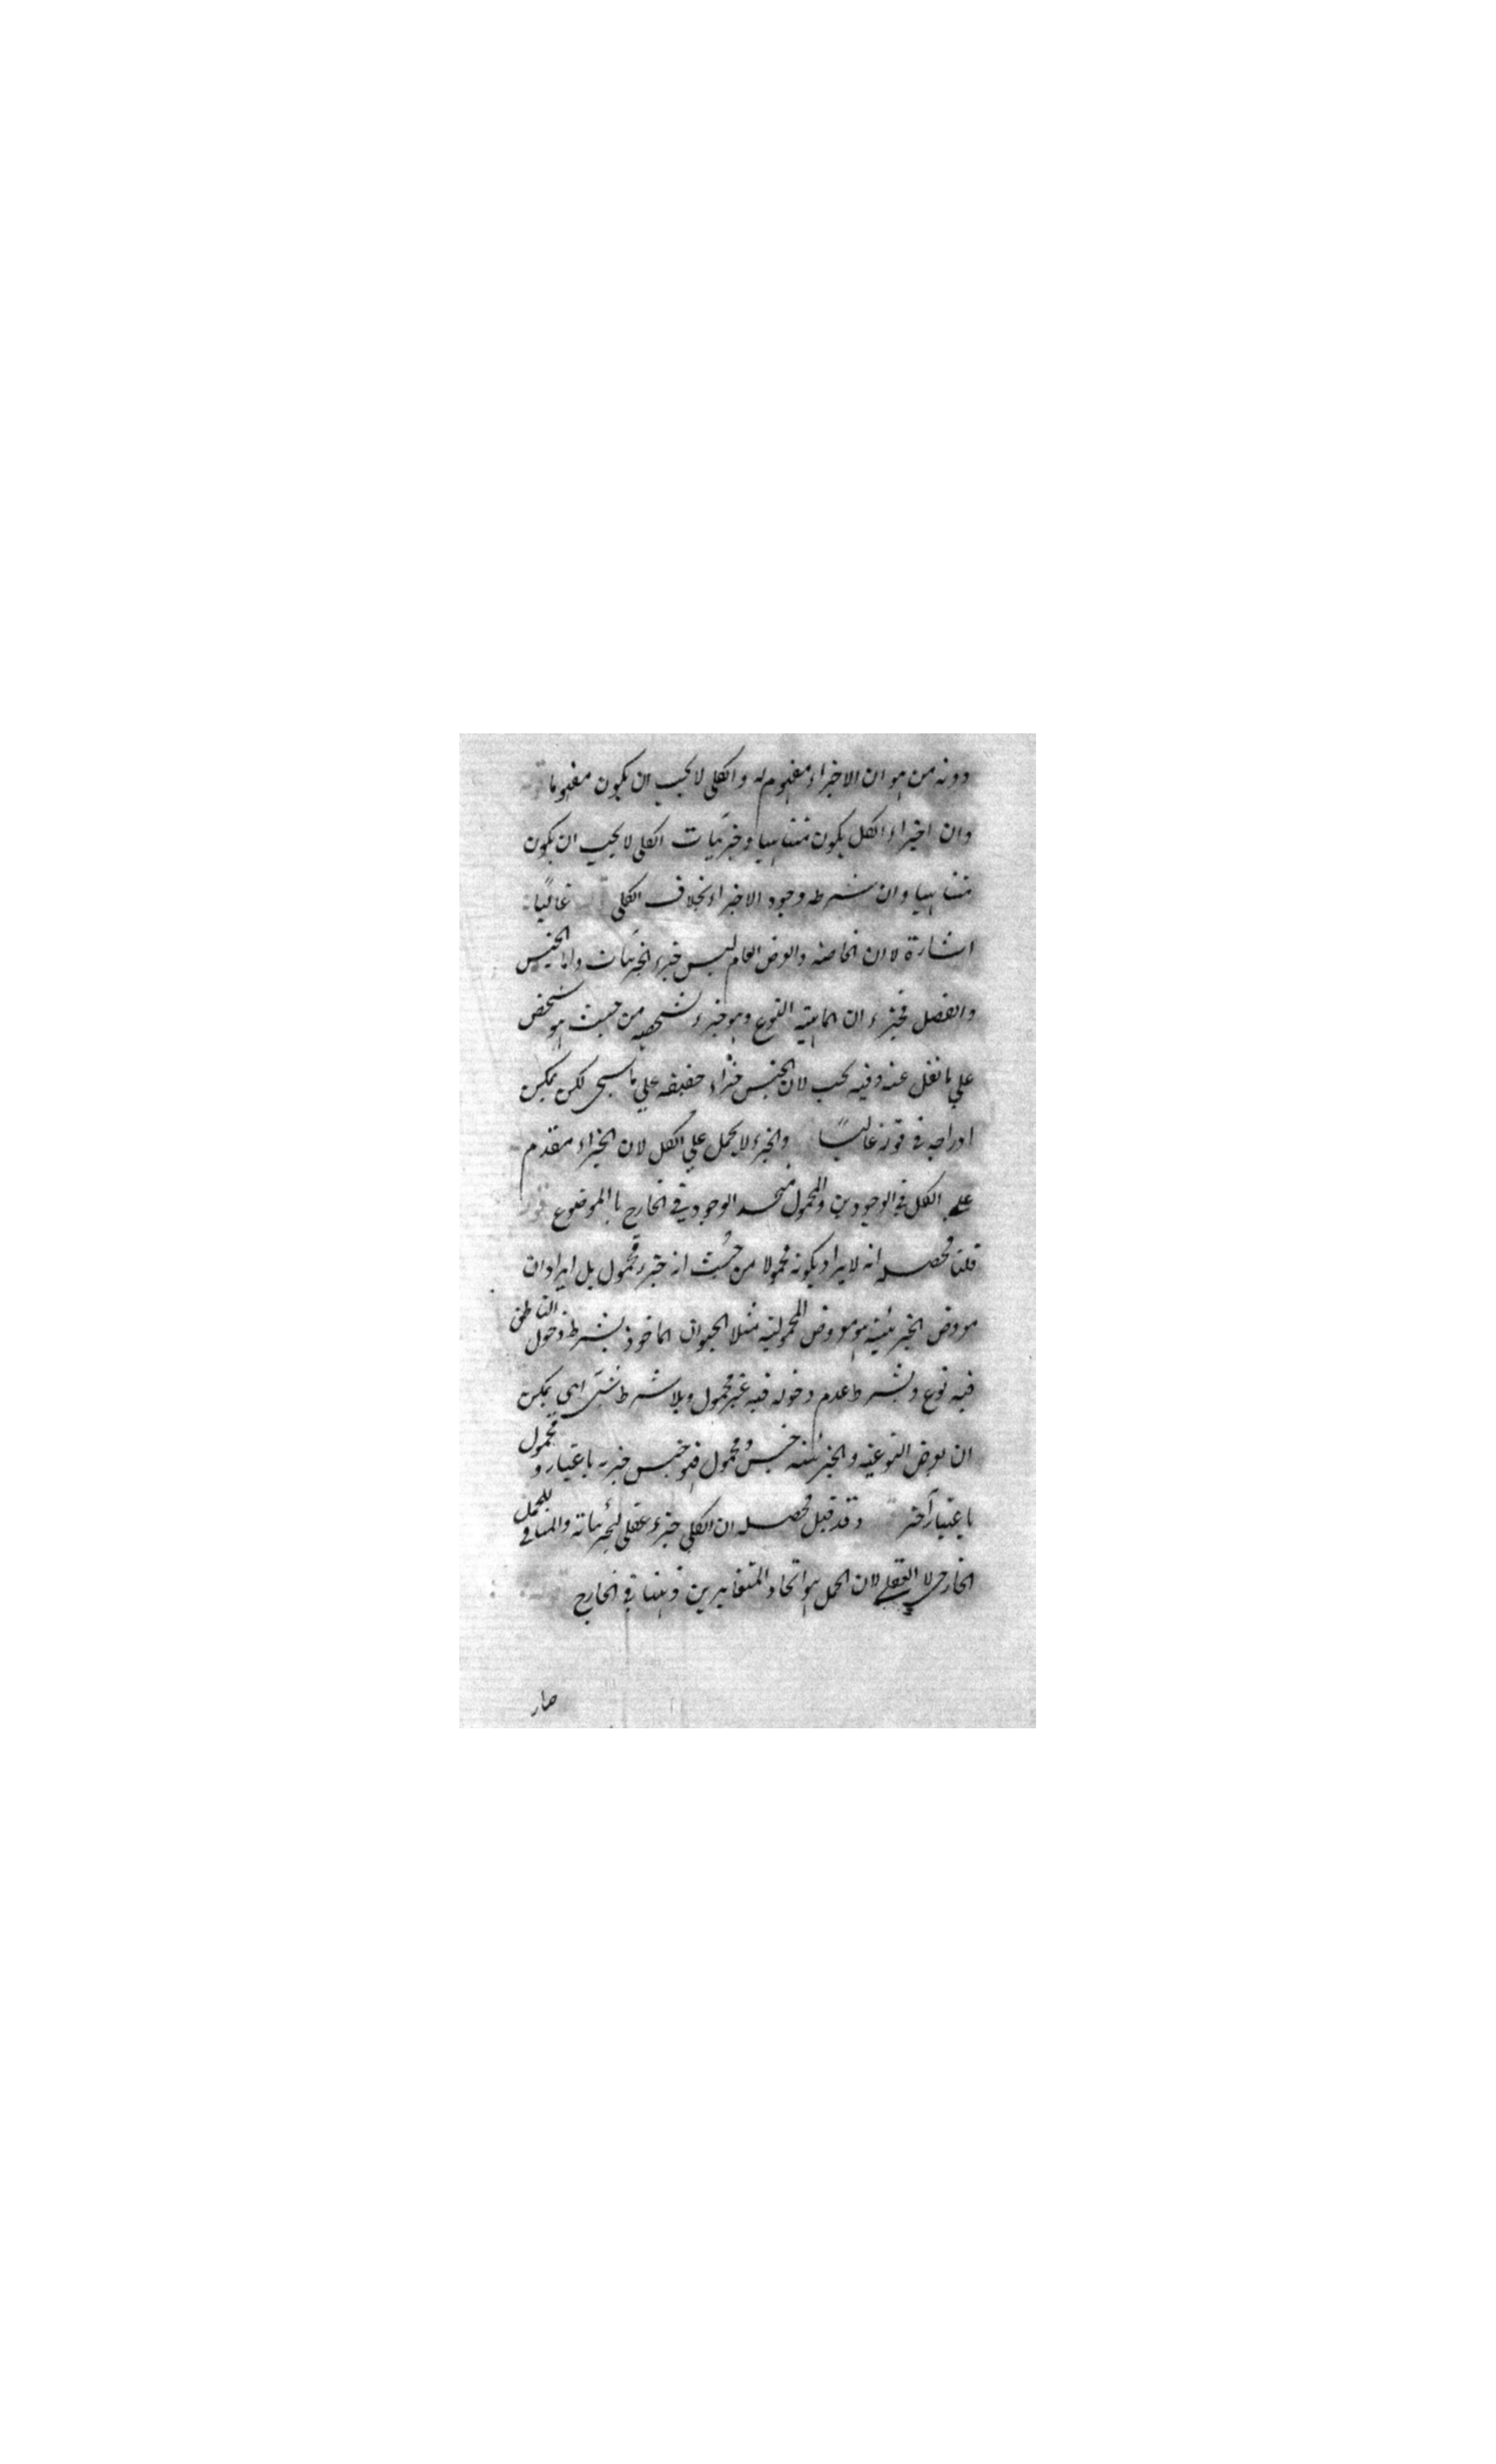 دونه من هو ان الاجزاء مفهوم له والكلى لا يجب ان يكون مفهوما
وان اجزاء الكل يكون متناهيا وجزئيات الكلى لا يجب ان يكون
متناهيا وان شرطه وجود الاجزاء بخلاف الكلى غالبًا
اشارة لا ان الخاصة والعرض العام ليس جزء الجزئيات واما الجنس
والفصل فجزء ان لماهية النوع وهو جزء شخصه من حيث هو شخص
على ما نقل عنه وفيه بحب لان الجنس جزاء حقيقه على ما سيجى لكن يمكن
ادراجه فى قوله غالبًا والجزء لا يحمل على الكل لان الجزاء مقدم
على الكل فى الوجودين والمحمول متحد الوجود فى الخارج بالموضوع
قلنا محصله انه لا يراد بكونه محمولا من حيث انه جزء محمول بل ايراد ان
معروض الجزئية هو معروض المحمولية مثلا الحيوان الماخوذ بشرط دخول الناطق
فيه نوع وبشرط عدم دخوله فيه غير محمول وبلا شرط شىء اى يمكن
ان يعرض النوعية والجزئية جنس ومحمول فهو جنس جزء باعتبار ومحمول
باعتبار آخر وقد قيل محصله ان الكلى جزء عقلى لجزئياته والمنافى للحمل
الخارجى لا العقلى لان الحمل هو اتحاد المتغايرين ذهنا فى الخارج
صار